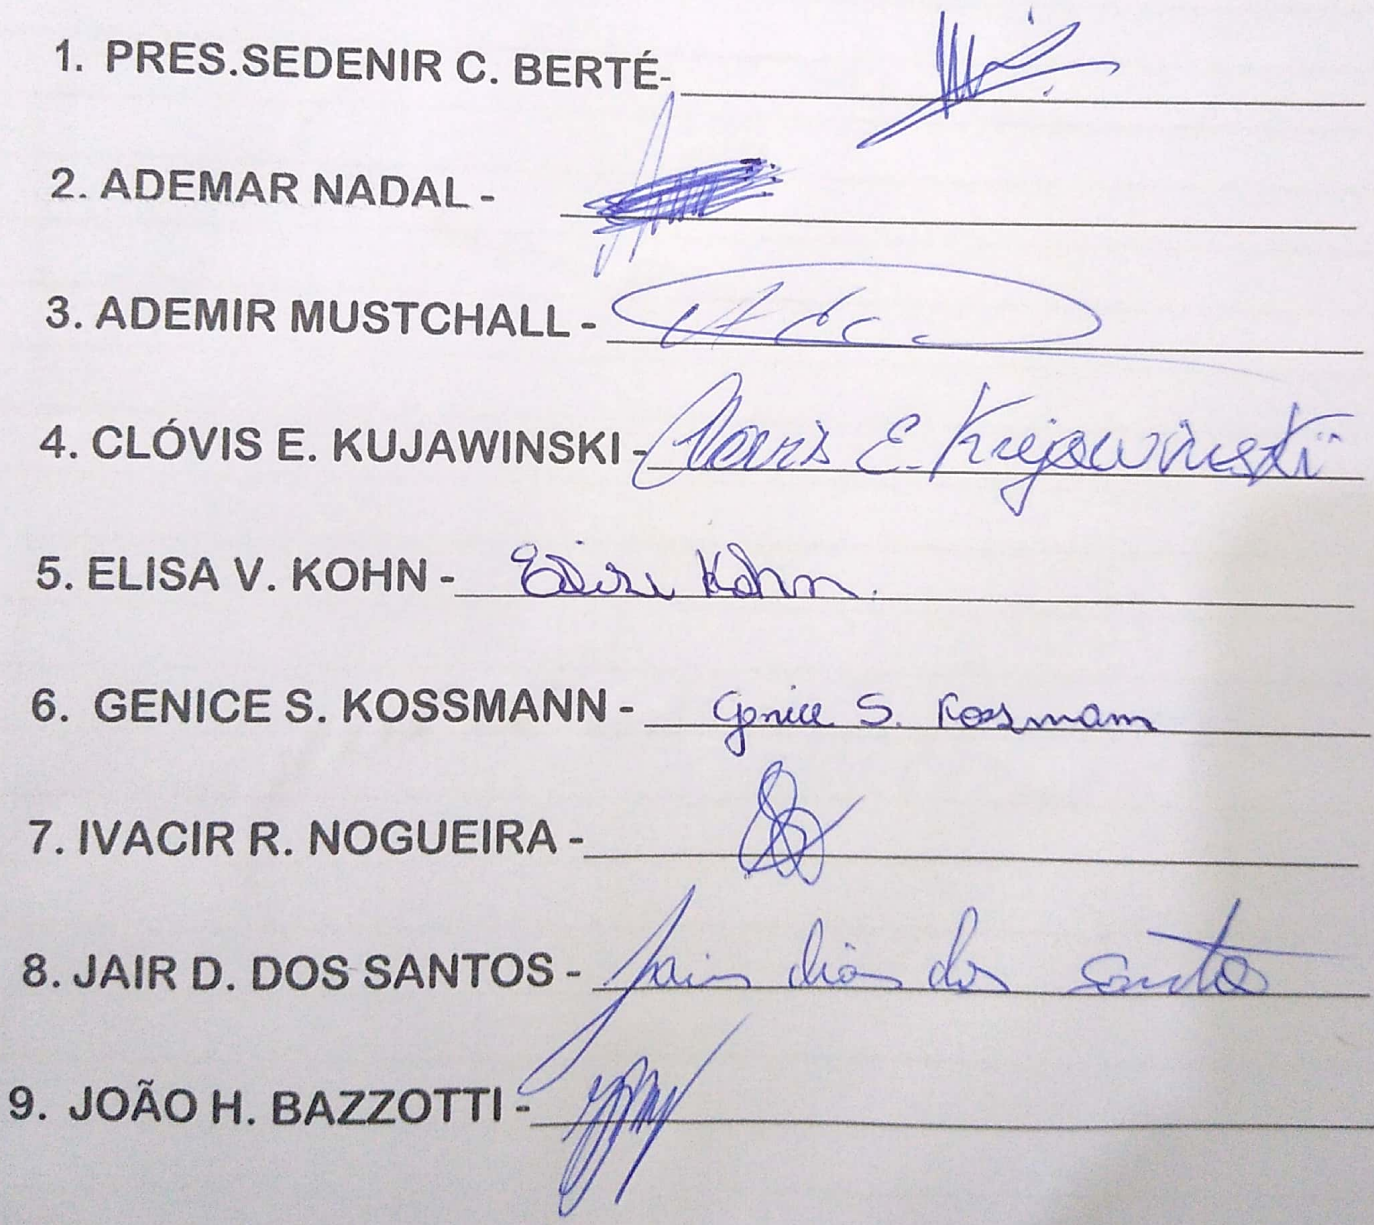 1. PRES.SEDENIR C. BERTÉ-
2. ADEMAR NADAL -
3. ADEMIR MUSTCHALL -
4. CLÓVIS E. KUJAWINSKI - Clovis E. Kujawinski
5. ELISA V. KOHN - Elisa Kohn.
6. GENICE S. KOSSMANN - Genice S. Kossmann
7. IVACIR R. NOGUEIRA -
8. JAIR D. DOS SANTOS - Jair dias dos santos
9. JOÃO H. BAZZOTTI -